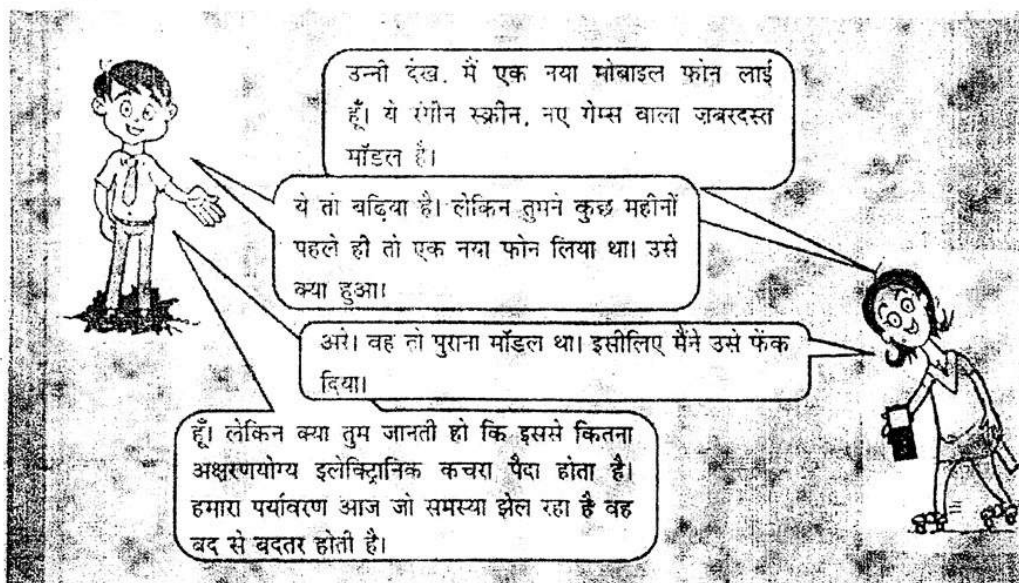 उन्नी देख. मैं एक नया मोबाइल फ़ोन लाई
हूँ। ये रंगीन स्क्रीन, नए गेम्स वाला ज़बरदस्त
मॉडल है।
ये तो बढ़िया है। लेकिन तुमने कुछ महीनों
पहले ही तो एक नया फोन लिया था। उसे
क्या हुआ।
अरे। वह तो पुराना मॉडल था। इसीलिए मैंने उसे फेंक
दिया।
हूँ। लेकिन क्या तुम जानती हो कि इससे कितना
अक्षरणयोग्य इलेक्ट्रिानिक कचरा पैदा होता है।
हमारा पर्यावरण आज जो समस्या झेल रहा है वह
बद से बदतर होती है।